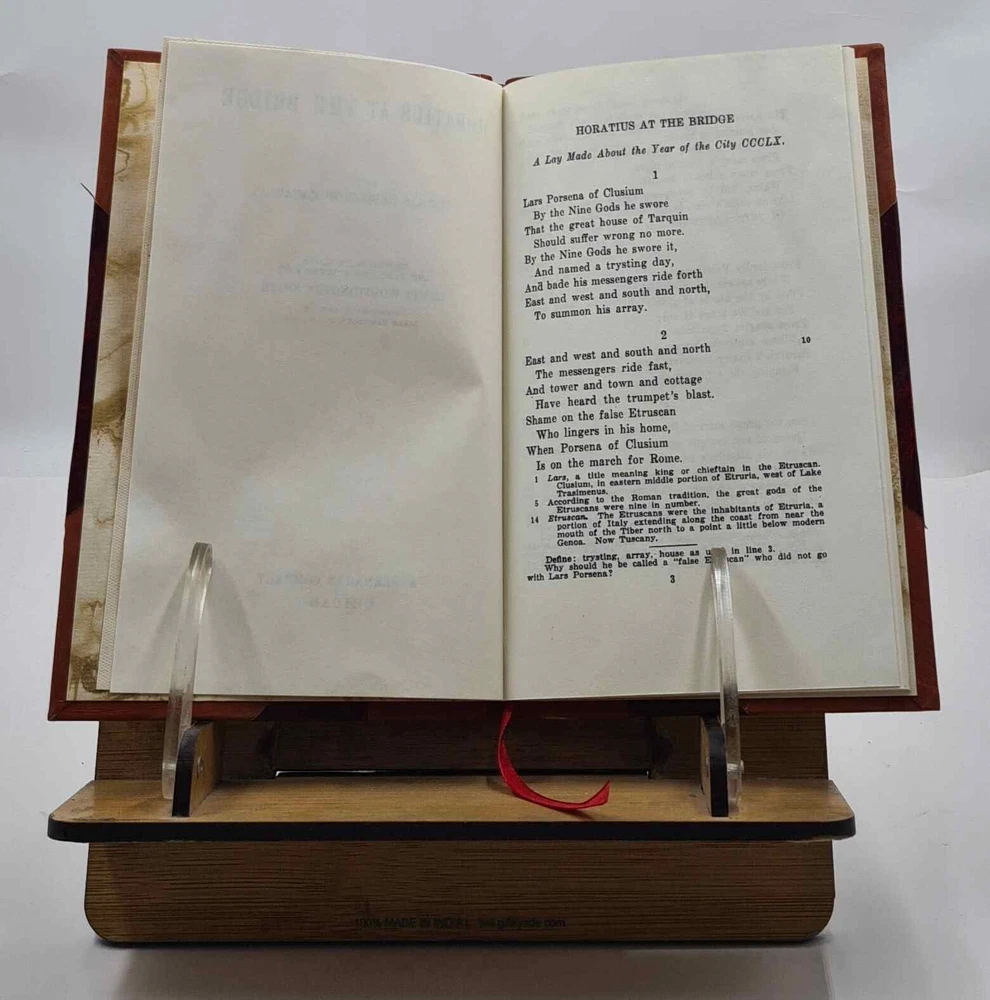 HORATIUS AT THE BRIDGE
A Lay Made About the Year of the City CCCLX.
1
Lars Porsena of Clusium
By the Nine Gods he swore
That the great house of Tarquin
Should suffer wrong no more.
By the Nine Gods he swore it,
And named a trysting day,
And bade his messengers ride forth
East and west and south and north,
To summon his array.
2
East and west and south and north 10
The messengers ride fast,
And tower and town and cottage
Have heard the trumpet's blast.
Shame on the false Etruscan
Who lingers in his home,
When Porsena of Clusium
Is on the march for Rome.
1 Lars, a title meaning king or chieftain in the Etruscan.
Clusium, in eastern middle portion of Etruria, west of Lake
Trasimenus.
5 According to the Roman tradition, the great gods of the
Etruscans were nine in number.
14 Etruscan. The Etruscans were the inhabitants of Etruria, a
portion of Italy extending along the coast from near the
mouth of the Tiber north to a point a little below modern
Genoa. Now Tuscany.
Define: trysting, array, house as in line 3.
Why should he be called a "false Etruscan" who did not go
with Lars Porsena?
3
100% MADE IN INDIA